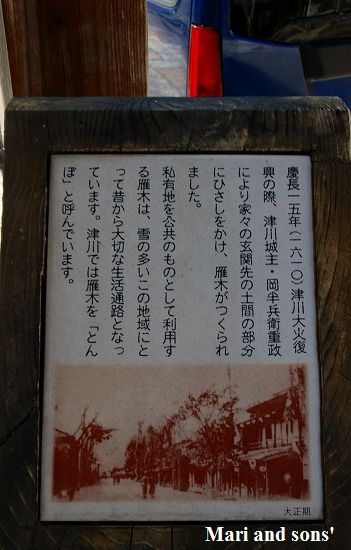 慶長一五年(一六一〇)津川大火復
興の際、津川城主・岡半兵衛重政
により家々の玄関先の土間の部分
にひさしをかけ、雁木がつくられ
ました。
私有地を公共のものとして利用す
る雁木は、雪の多いこの地域にと
って昔から大切な生活通路となっ
ています。津川では雁木を「とん
ぼ」と呼んでいます。
大正期
Mari and sons'